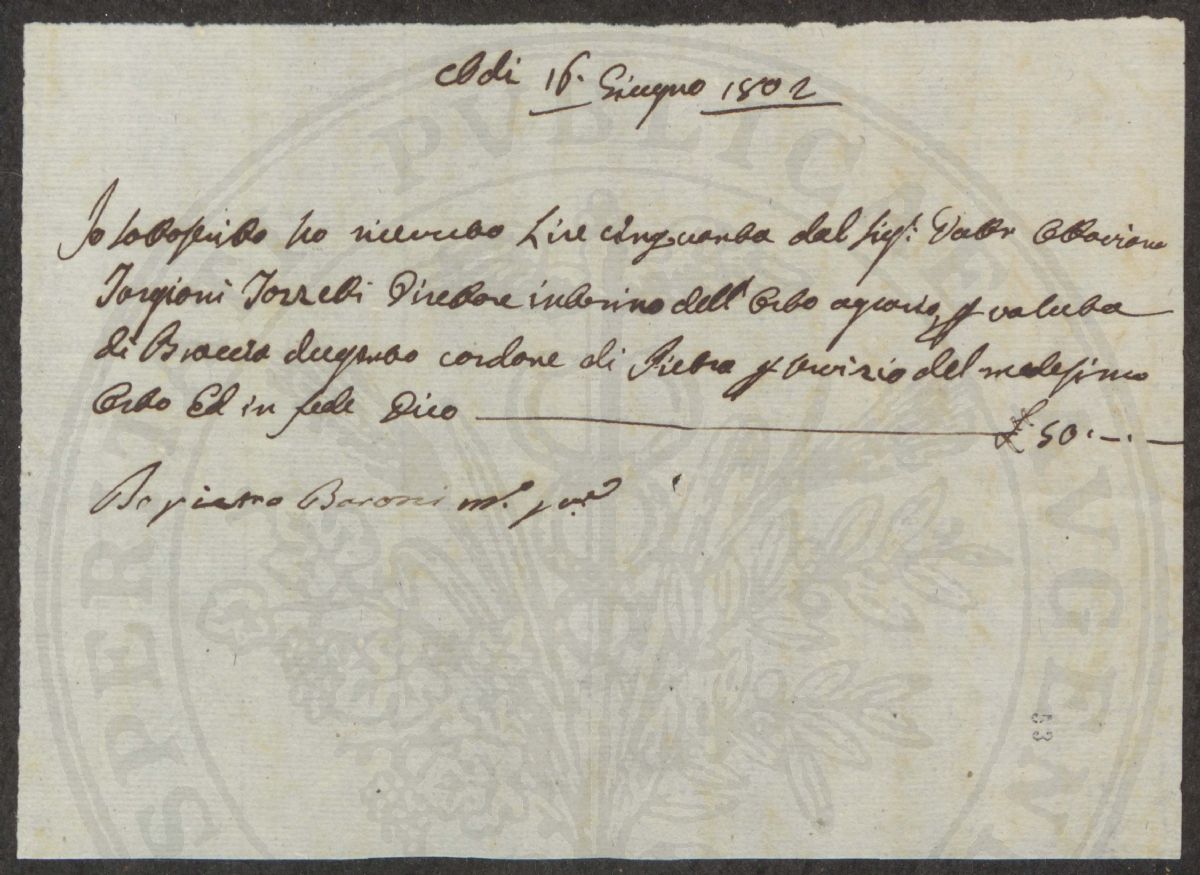 Adi 16. Giugno 1802
Io sottoscritto ho ricevuto Lire cinquanta dal Sigr. Dottr Ottaviano
Targioni Tozzetti Direttore interino dell'Orto agrario, p valuta
di Braccia dugento cordone di Pietra p servizio del medesimo
Orto Ed in fede Dico £ 50.—.—
Io pietro Baroni mo. pa.
53
PVBLICAE
PROSPERITATI AVGEN